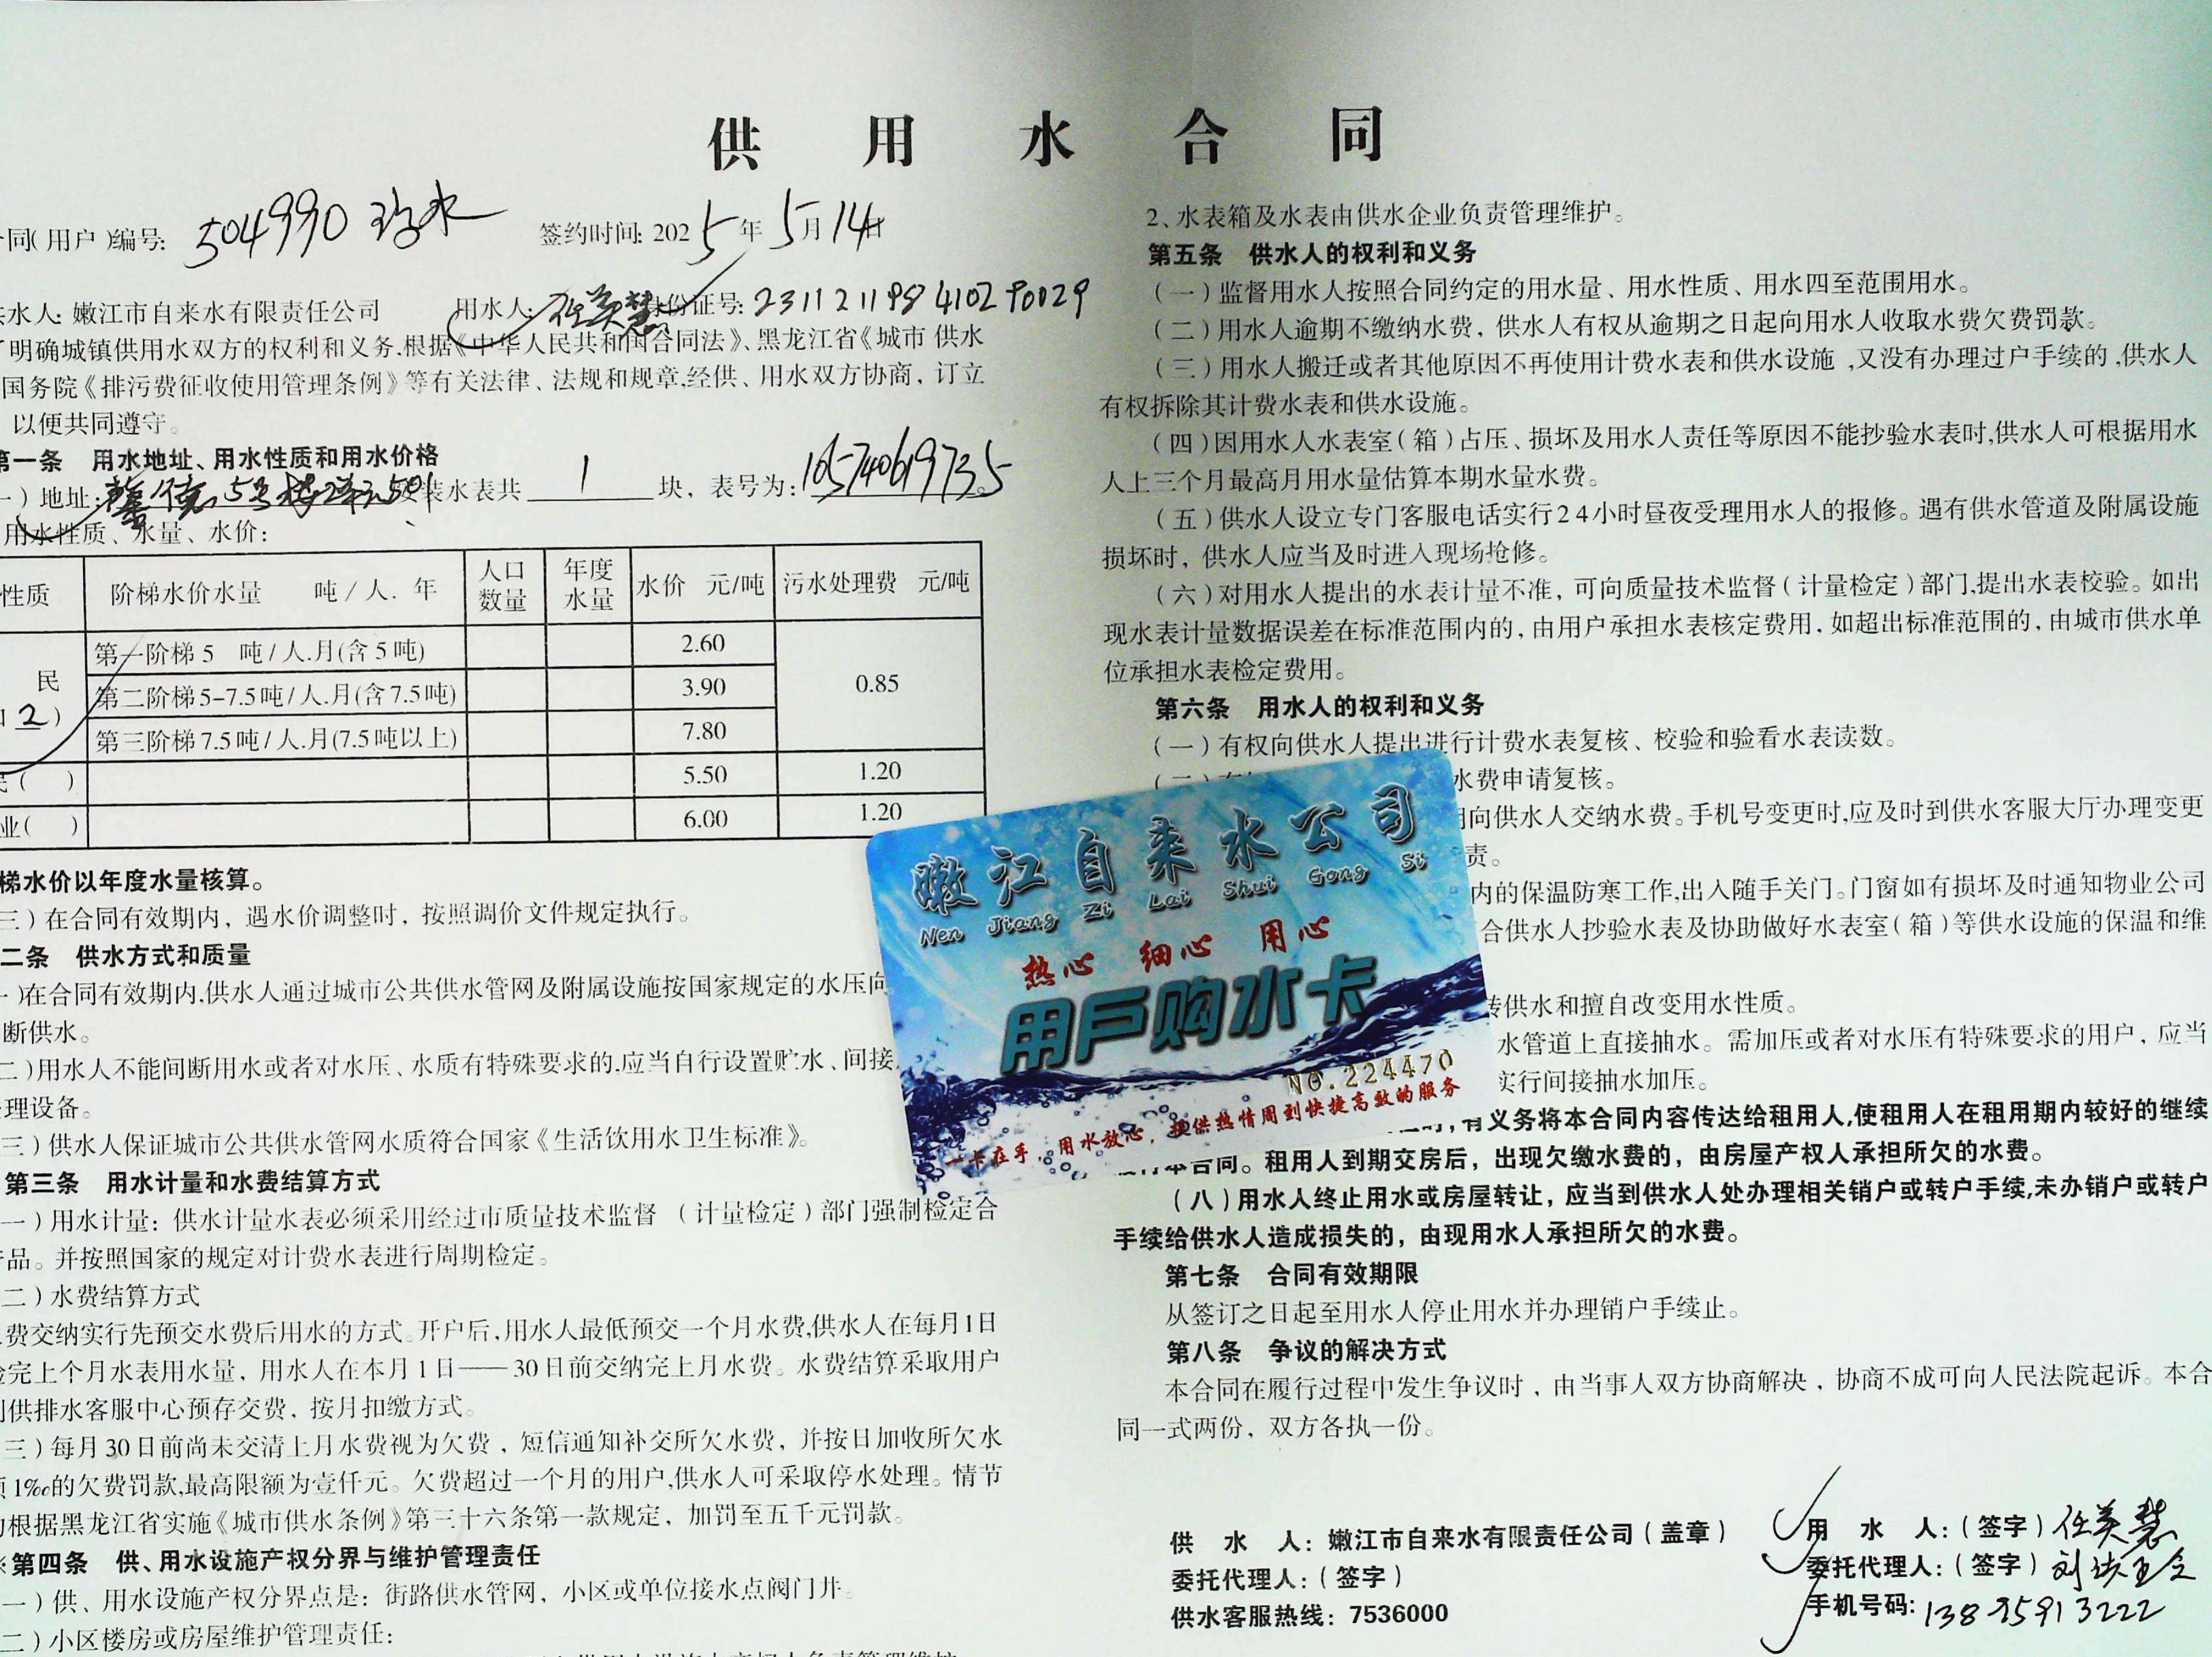 供用水合同
同(用户)编号: 504990 签约时间: 2025年5月14日
水人: 嫩江市自来水有限责任公司 用水人: 任美慧 身份证号: 231121198410290029
了明确城镇供用水双方的权利和义务.根据《中华人民共和国合同法》、黑龙江省《城市供水
国务院《排污费征收使用管理条例》等有关法律、法规和规章,经供、用水双方协商，订立
以便共同遵守。
第一条 用水地址、用水性质和用水价格
一)地址: 5号楼2单元501 装水表共 1 块，表号为: 105740619735
用水性质、水量、水价:
性质 阶梯水价水量 吨/人. 年 人口数量 年度水量 水价 元/吨 污水处理费 元/吨
民 2) 第一阶梯 5 吨/人.月(含5吨) 2.60 0.85
第二阶梯 5-7.5吨/人.月(含7.5吨) 3.90
第三阶梯 7.5吨/人.月(7.5吨以上) 7.80
民( ) 5.50 1.20
业( ) 6.00 1.20
梯水价以年度水量核算。
三)在合同有效期内，遇水价调整时，按照调价文件规定执行。
二条 供水方式和质量
一)在合同有效期内,供水人通过城市公共供水管网及附属设施按国家规定的水压向
断供水。
二)用水人不能间断用水或者对水压、水质有特殊要求的,应当自行设置贮水、间接
理设备。
三)供水人保证城市公共供水管网水质符合国家《生活饮用水卫生标准》。
第三条 用水计量和水费结算方式
一)用水计量：供水计量水表必须采用经过市质量技术监督 (计量检定)部门强制检定合
产品。并按照国家的规定对计费水表进行周期检定。
二)水费结算方式
费交纳实行先预交水费后用水的方式。开户后,用水人最低预交一个月水费,供水人在每月1日
完上个月水表用水量，用水人在本月1日——30日前交纳完上月水费。水费结算采取用户
供排水客服中心预存交费，按月扣缴方式。
三)每月30日前尚未交清上月水费视为欠费，短信通知补交所欠水费，并按日加收所欠水
1‰的欠费罚款,最高限额为壹仟元。欠费超过一个月的用户,供水人可采取停水处理。情节
根据黑龙江省实施《城市供水条例》第三十六条第一款规定，加罚至五千元罚款。
※第四条 供、用水设施产权分界与维护管理责任
一)供、用水设施产权分界点是：街路供水管网，小区或单位接水点阀门井。
二)小区楼房或房屋维护管理责任:
2、水表箱及水表由供水企业负责管理维护。
第五条 供水人的权利和义务
(一)监督用水人按照合同约定的用水量、用水性质、用水四至范围用水。
(二)用水人逾期不缴纳水费，供水人有权从逾期之日起向用水人收取水费欠费罚款。
(三)用水人搬迁或者其他原因不再使用计费水表和供水设施，又没有办理过户手续的,供水人
有权拆除其计费水表和供水设施。
(四)因用水人水表室(箱)占压、损坏及用水人责任等原因不能抄验水表时,供水人可根据用水
人上三个月最高月用水量估算本期水量水费。
(五)供水人设立专门客服电话实行24小时昼夜受理用水人的报修。遇有供水管道及附属设施
损坏时，供水人应当及时进入现场抢修。
(六)对用水人提出的水表计量不准，可向质量技术监督(计量检定)部门,提出水表校验。如出
现水表计量数据误差在标准范围内的，由用户承担水表核定费用，如超出标准范围的，由城市供水单
位承担水表检定费用。
第六条 用水人的权利和义务
(一)有权向供水人提出进行计费水表复核、校验和验看水表读数。
水费申请复核。
向供水人交纳水费。手机号变更时,应及时到供水客服大厅办理变更
责。
内的保温防寒工作,出入随手关门。门窗如有损坏及时通知物业公司
合供水人抄验水表及协助做好水表室(箱)等供水设施的保温和维
转供水和擅自改变用水性质。
水管道上直接抽水。需加压或者对水压有特殊要求的用户，应当
实行间接抽水加压。
有义务将本合同内容传达给租用人,使租用人在租用期内较好的继续
本合同。租用人到期交房后，出现欠缴水费的，由房屋产权人承担所欠的水费。
(八)用水人终止用水或房屋转让，应当到供水人处办理相关销户或转户手续,未办销户或转户
手续给供水人造成损失的，由现用水人承担所欠的水费。
第七条 合同有效期限
从签订之日起至用水人停止用水并办理销户手续止。
第八条 争议的解决方式
本合同在履行过程中发生争议时，由当事人双方协商解决，协商不成可向人民法院起诉。本合
同一式两份，双方各执一份。
供水人：嫩江市自来水有限责任公司(盖章)
委托代理人：(签字)
供水客服热线：7536000
用水人：(签字) 任美慧
委托代理人：(签字)
手机号码: 13895913222
嫩江自来水公司
Nen Jiang Zi Lai Shui Gong Si
热心 细心 用心
用户购水卡
NO.224470
一卡在手，用水放心，提供热情周到快捷高效的服务